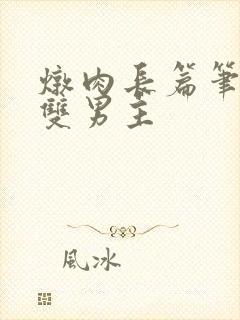 燉肉長篇筆
雙男主
風冰